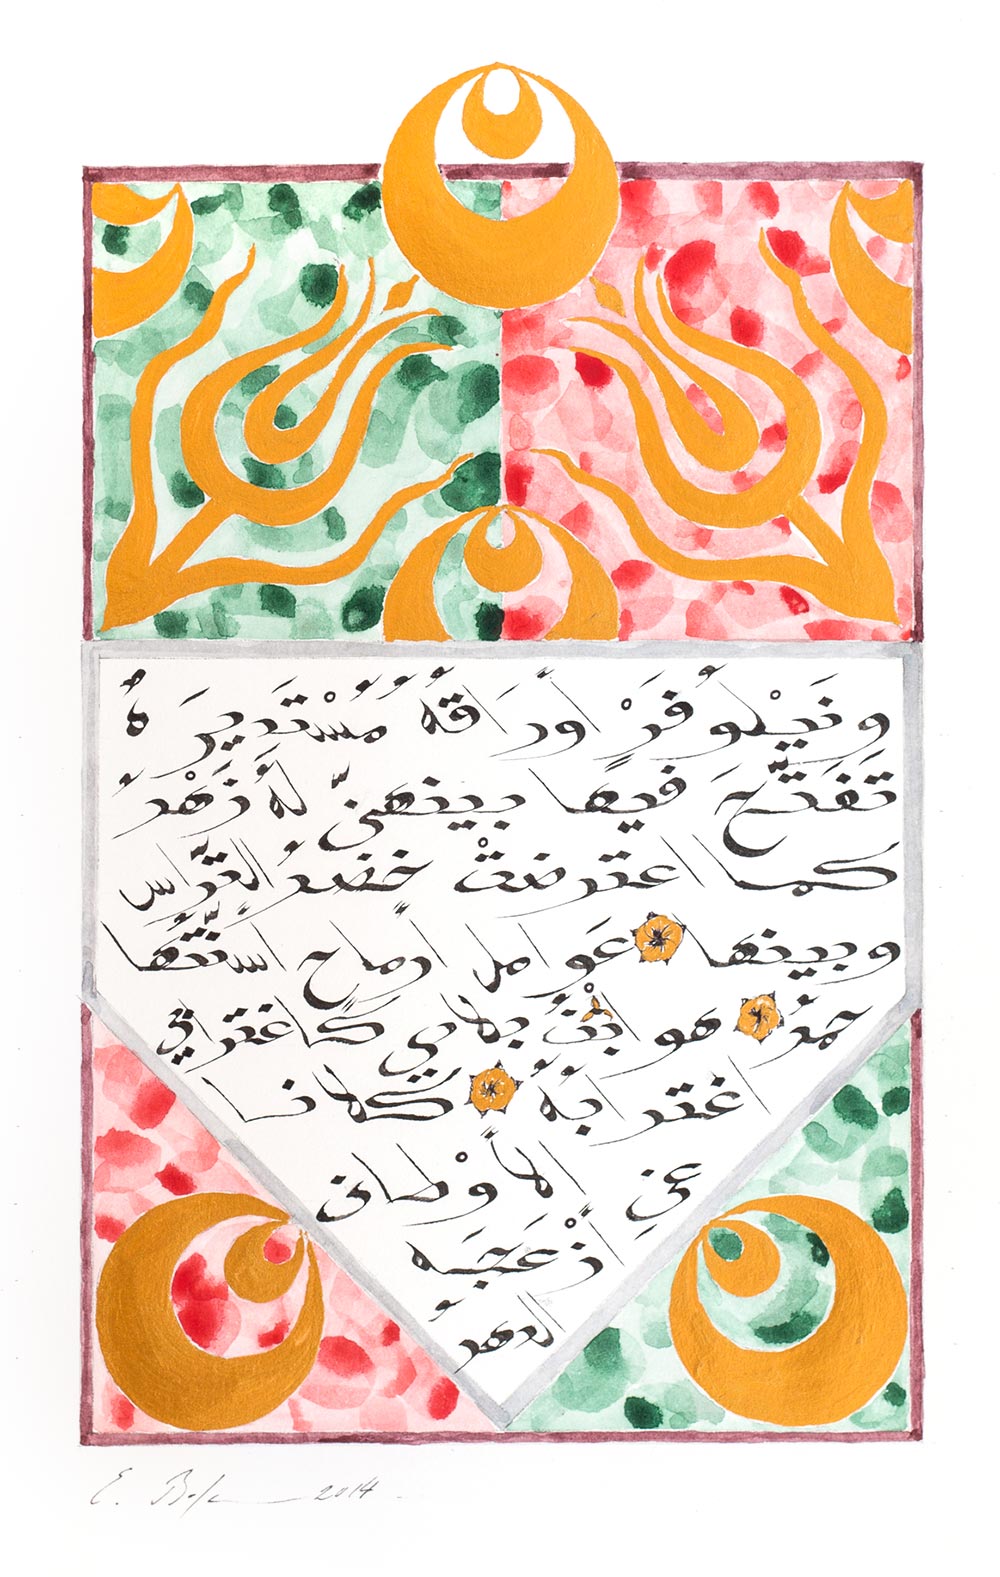 وَنَيْلُوفَرْ أَورَاقُهُ مُسْتَدِيرَةُ
تَفَتَّحَ فيها بينهنّ لهُ زَهْرُ
كما اعترضتْ خضرُ التّراس
وبينها عَوامل أرماح أسنّتُها
حمرُ هو ابْنُ بلادي كاغترابي
اغترابهُ كلانا
عنِ الأوْطان
أزْعَجَه
الدهرُ
E. 2014